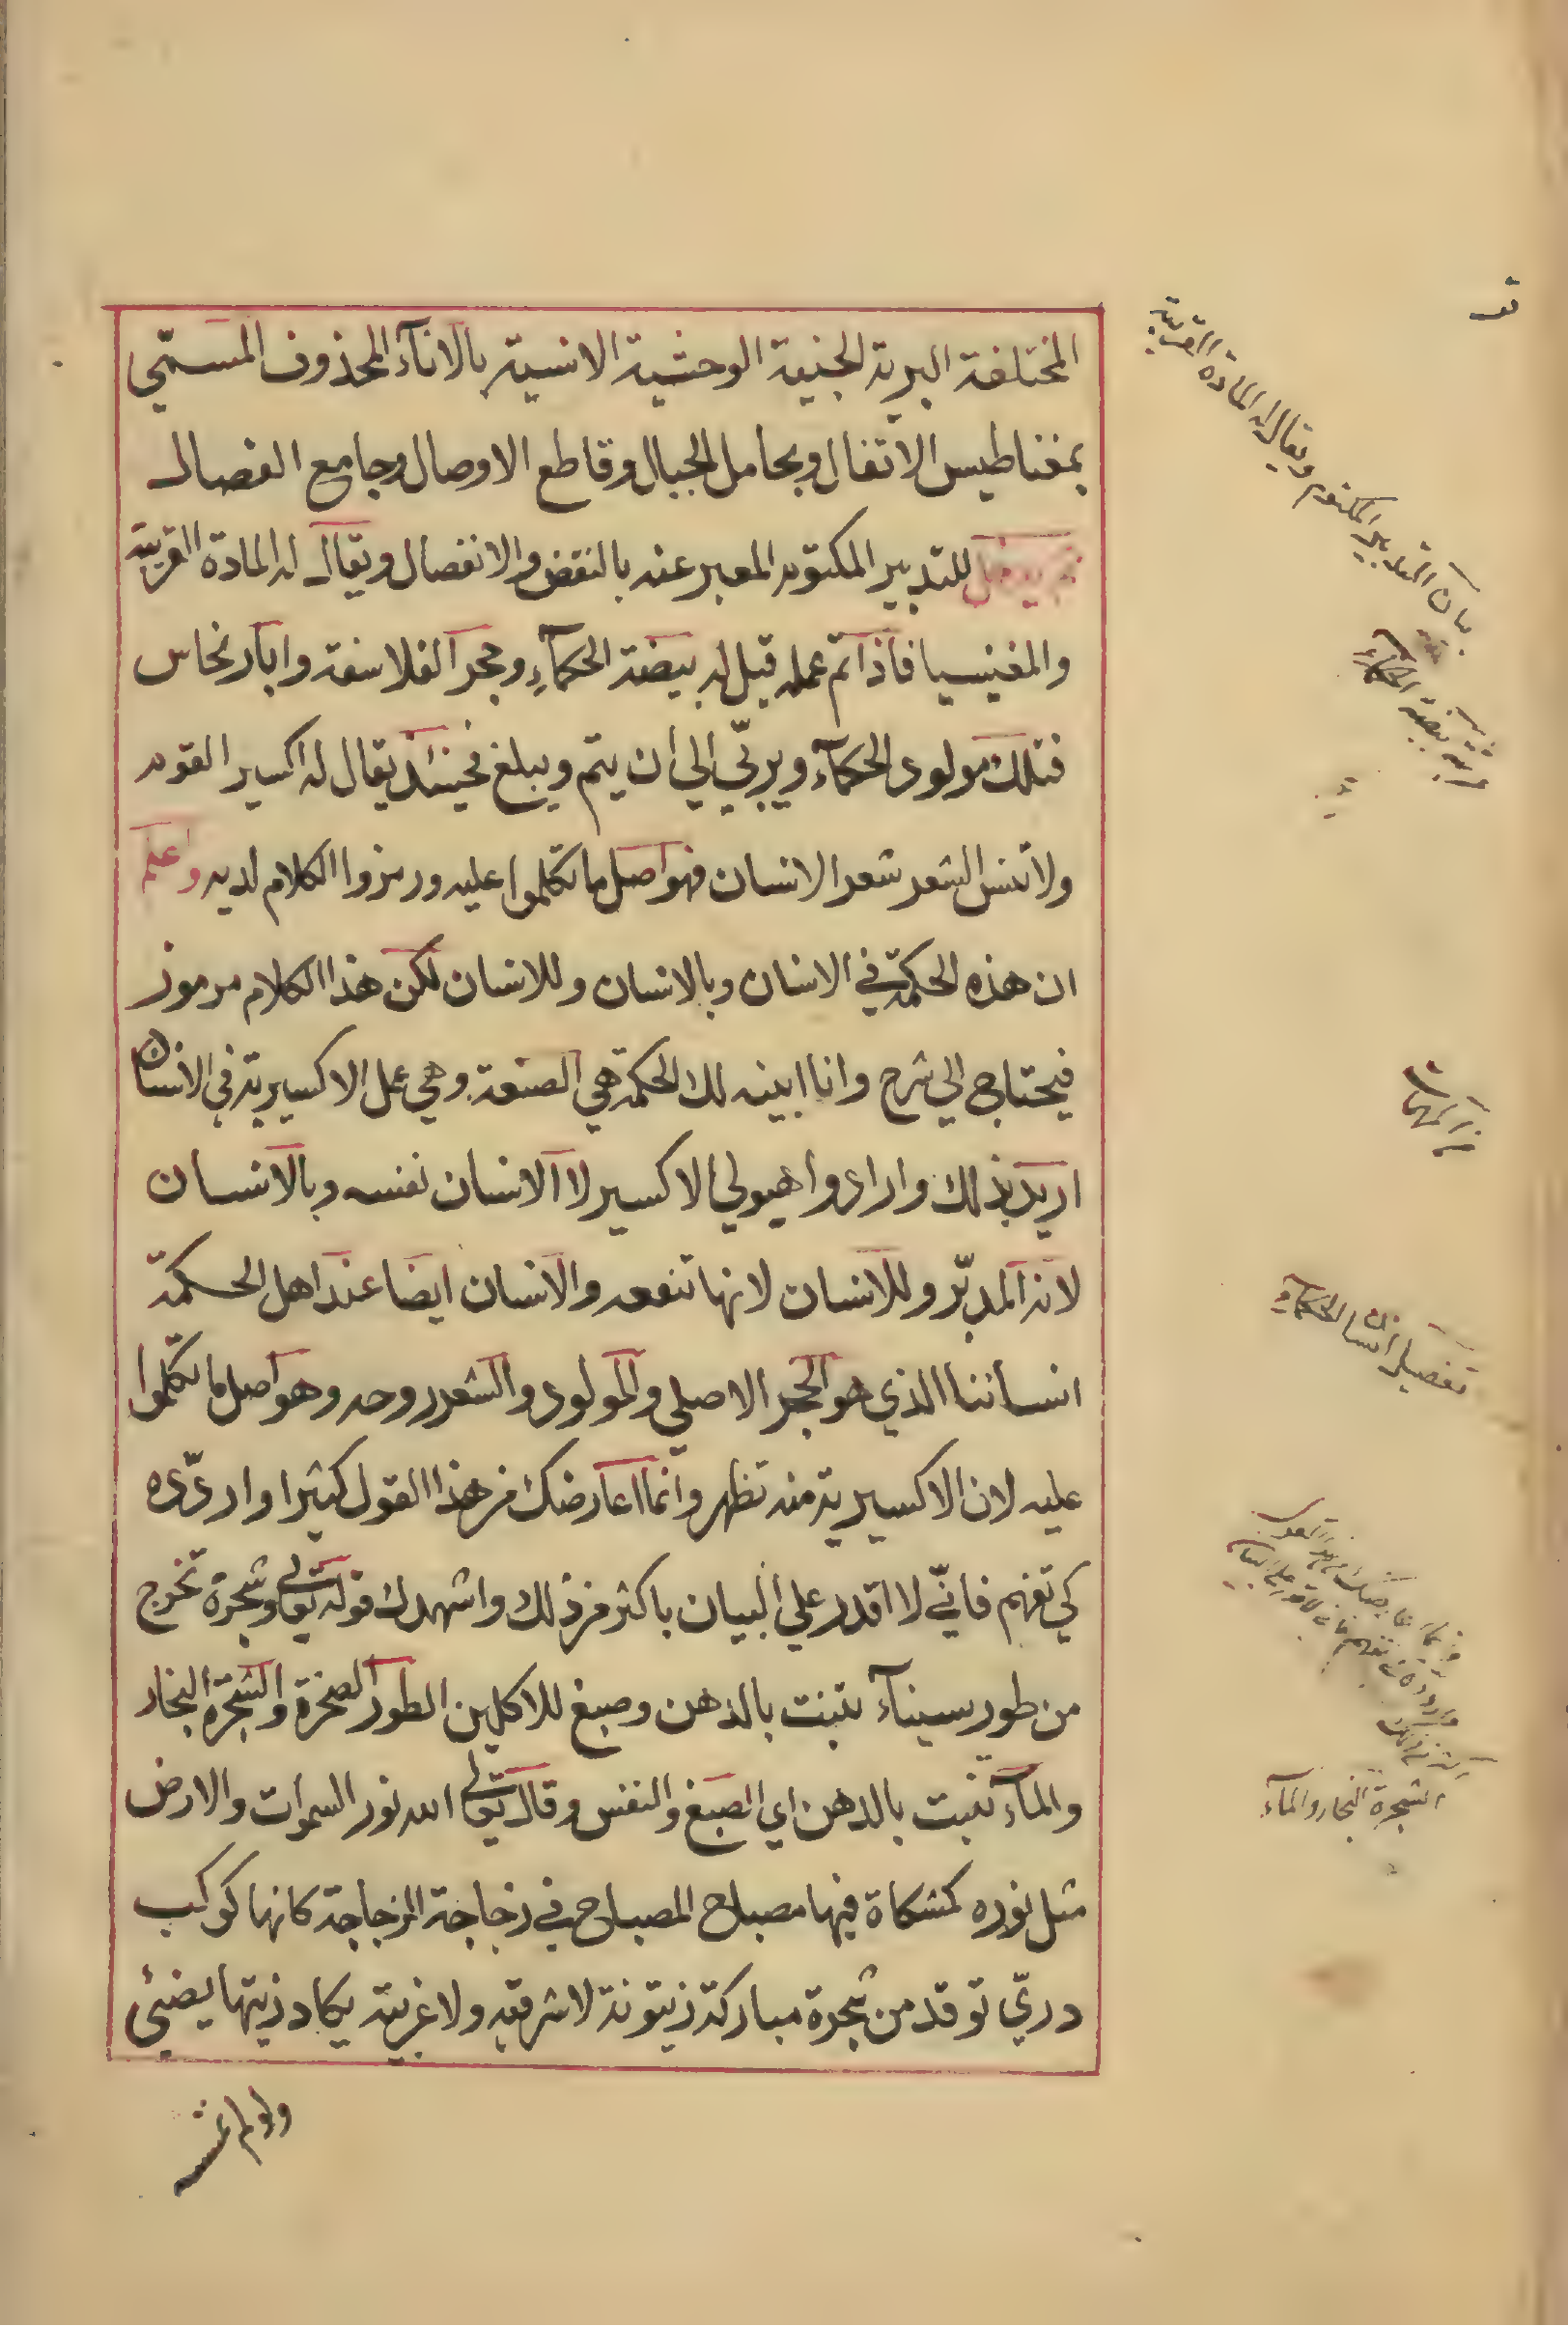 المختلفة البرية الجنية الوحشية الانسية بالاناء المحذوف المسمي
بمغناطيس الاثفال وبحامل الجبال وقاطع الاوصال وجامع الفصال
ثم يدخل للتدبير المكتوم المعبر عنه بالنقض والانفصال ويقال له المادة القريبة
والمغنيسيا فاذا تم عمله قيل له بيضة الحكمآء وحجر الفلاسفة وابار نحاس
فتلك مولود الحكمآء ويربّي الي ان يتم ويبلغ فحينئذ يقال له اكسير القوم
ولا تنس الشعر شعر الانسان فهو اصل ما تكلموا عليه ورمزوا الكلام لديه واعلم
ان هذه الحكمة في الانسان وبالانسان وللانسان لكن هذا الكلام مرموز
فيحتاج الي شرح وانا ابينه لك الحكمة هي الصنعة وهي عمل الاكسيرية في الانسان
اريد بذلك وارادوا هيولي الاكسير لا الانسان نفسه وبالانسان
لانه المدبّر وللانسان لانها تنفعه والانسان ايضا عند اهل الحكمة
انساننا الذي هو الحجر الاصلي والمولود والشعر روحه وهو اصل ما تكلموا
عليه لان الاكسيرية منه تظهر وانما اعارضك من هذا القول كثيرا واردّده
كي تفهم فانّي لا اقدر علي البيان باكثر من ذلك واشهدك قوله تعالي وشجرة تخرج
من طور سيناء تنبت بالدهن وصبغ للاكلين الطور الصخرة والشجرة البخار
والمآء تنبت بالدهن اي الصبغ والنفس وقال تعالي الله نور السموات والارض
مثل نوره كمشكاة فيها مصباح المصباح في زجاجة الزجاجة كانها كوكب
دريّ توقد من شجرة مباركة زيتونة لا شرقية ولا غربية يكاد زيتها يضيئ
ولو لم تمسسه
بيان التدبير المكتوم ويقال له المادة القريبة
بيضة الحكمآء
تفصيل انسان الحكمآء
الشجرة البخار والمآء